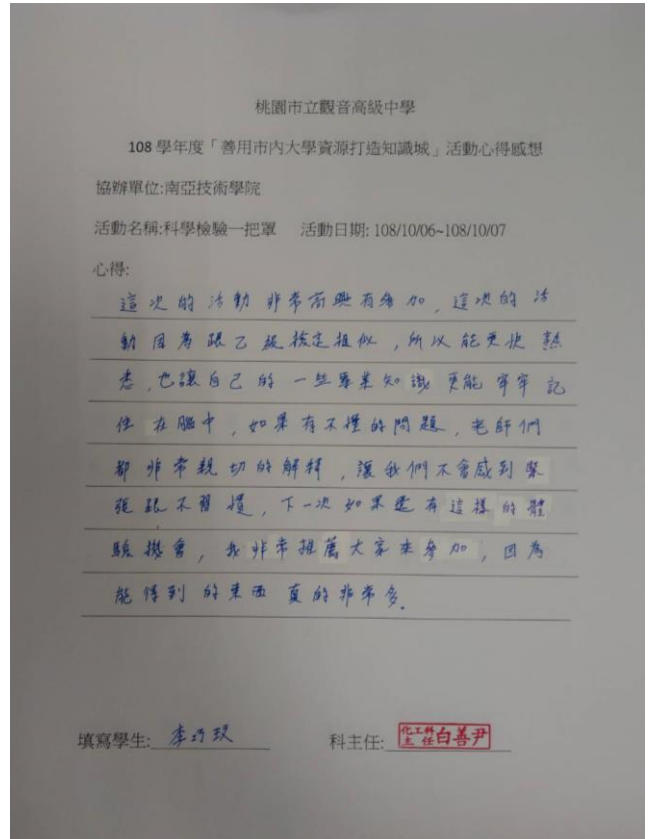 桃園市立觀音高級中學
108 學年度「善用市內大學資源打造知識城」活動心得感想
協辦單位:南亞技術學院
活動名稱:科學檢驗一把罩 活動日期: 108/10/06~108/10/07
心得:
這次的活動非常高興有參加,這次的活
動因為跟乙級檢定相似,所以能更快熟
悉,也讓自己的一些專業知識更能牢牢記
住在腦中,如果有不懂的問題,老師們
都非常親切的解釋,讓我們不會感到緊
張跟不習慣,下一次如果還有這樣的體
驗機會,我非常推薦大家來參加,因為
能得到的東西真的非常多.
填寫學生: 李巧玟 科主任: 化工科主任 白善尹